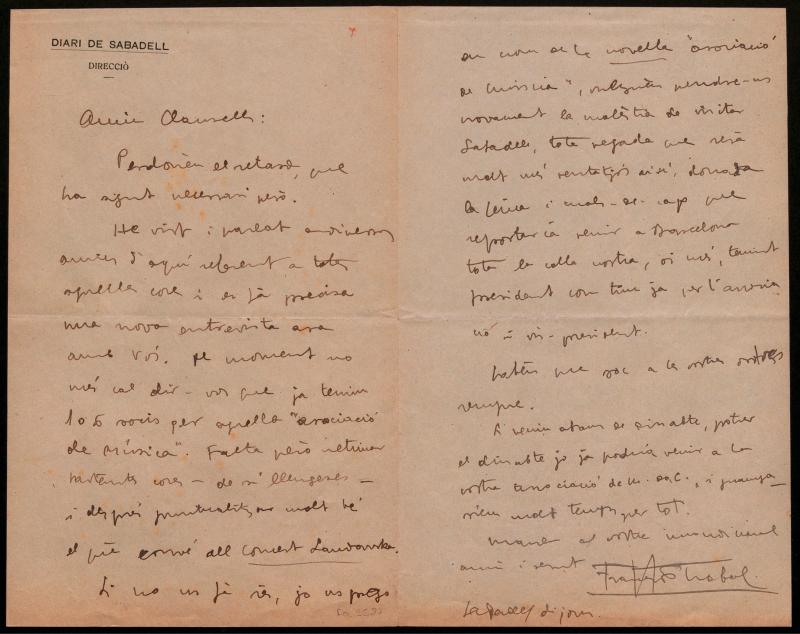 DIARI DE SABADELL
DIRECCIÓ
Amic Clausells:
Perdonèu el retard, que
ha sigut necessari però.
He vist i parlat a diversos
amics d'aquí referent a totes
aquelles coses i es fa precisa
una nova entrevista ara
amb Vós. De moment no
més cal dir-vos que ja tenim
106 socis per aquella "associació
de Música". Falta però ultimar
bastantes coses - de ses llengeses -
i després puntualitzar molt bé
el que convé del Concert Landowska.
Si no us fa res, jo us prego
en nom de la novella "asociació
de música", vulguèu pendre-us
novament la molèstia de visitar
Sabadell, tota vegada que serà
molt més ventatjós aixi, donada
la feina i mals-de-cap que
reportaria venir a Barcelona
tota la colla nostra, oi més, tenint
president com tinc ja per l'associa
ció i vis-president.
Sabèu que soc a les vostres ordres
sempre.
Si veniu abans de dissabte, potser
el dissabte jo ja podria venir a la
vostra Associació de M. da C., i guanya-
riem molt temps per tot.
Maneu al vostre incondicional
amic i servent
Sabadell dijous.